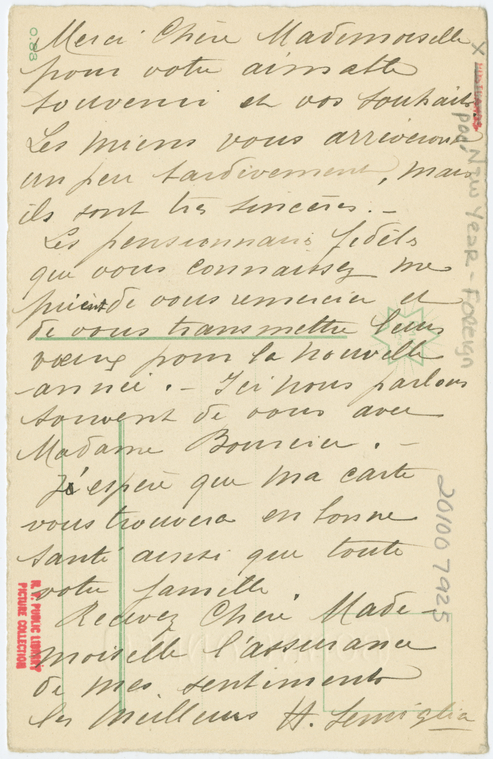 Merci Chère Mademoiselle
pour votre aimable
souvenir et vos souhaits
Les miens vous arriveront
un peu tardivement, mais
ils sont très sincères. –
Les pensionnaires fidèles
que vous connaissez me
prient de vous remercier et
de vous transmettre leurs
vœux pour la nouvelle
année. – Ici nous parlons
souvent de vous avec
Madame
J'espère que ma carte
vous trouvera en bonne
santé ainsi que toute
votre famille
Recevez Chère Made-
moiselle l'assurance
de mes sentiments
les meilleurs H.
x
pod.
New Year - Foreign
20100 7925
N. Y. PUBLIC LIBRARY
PICTURE COLLECTION
0.83